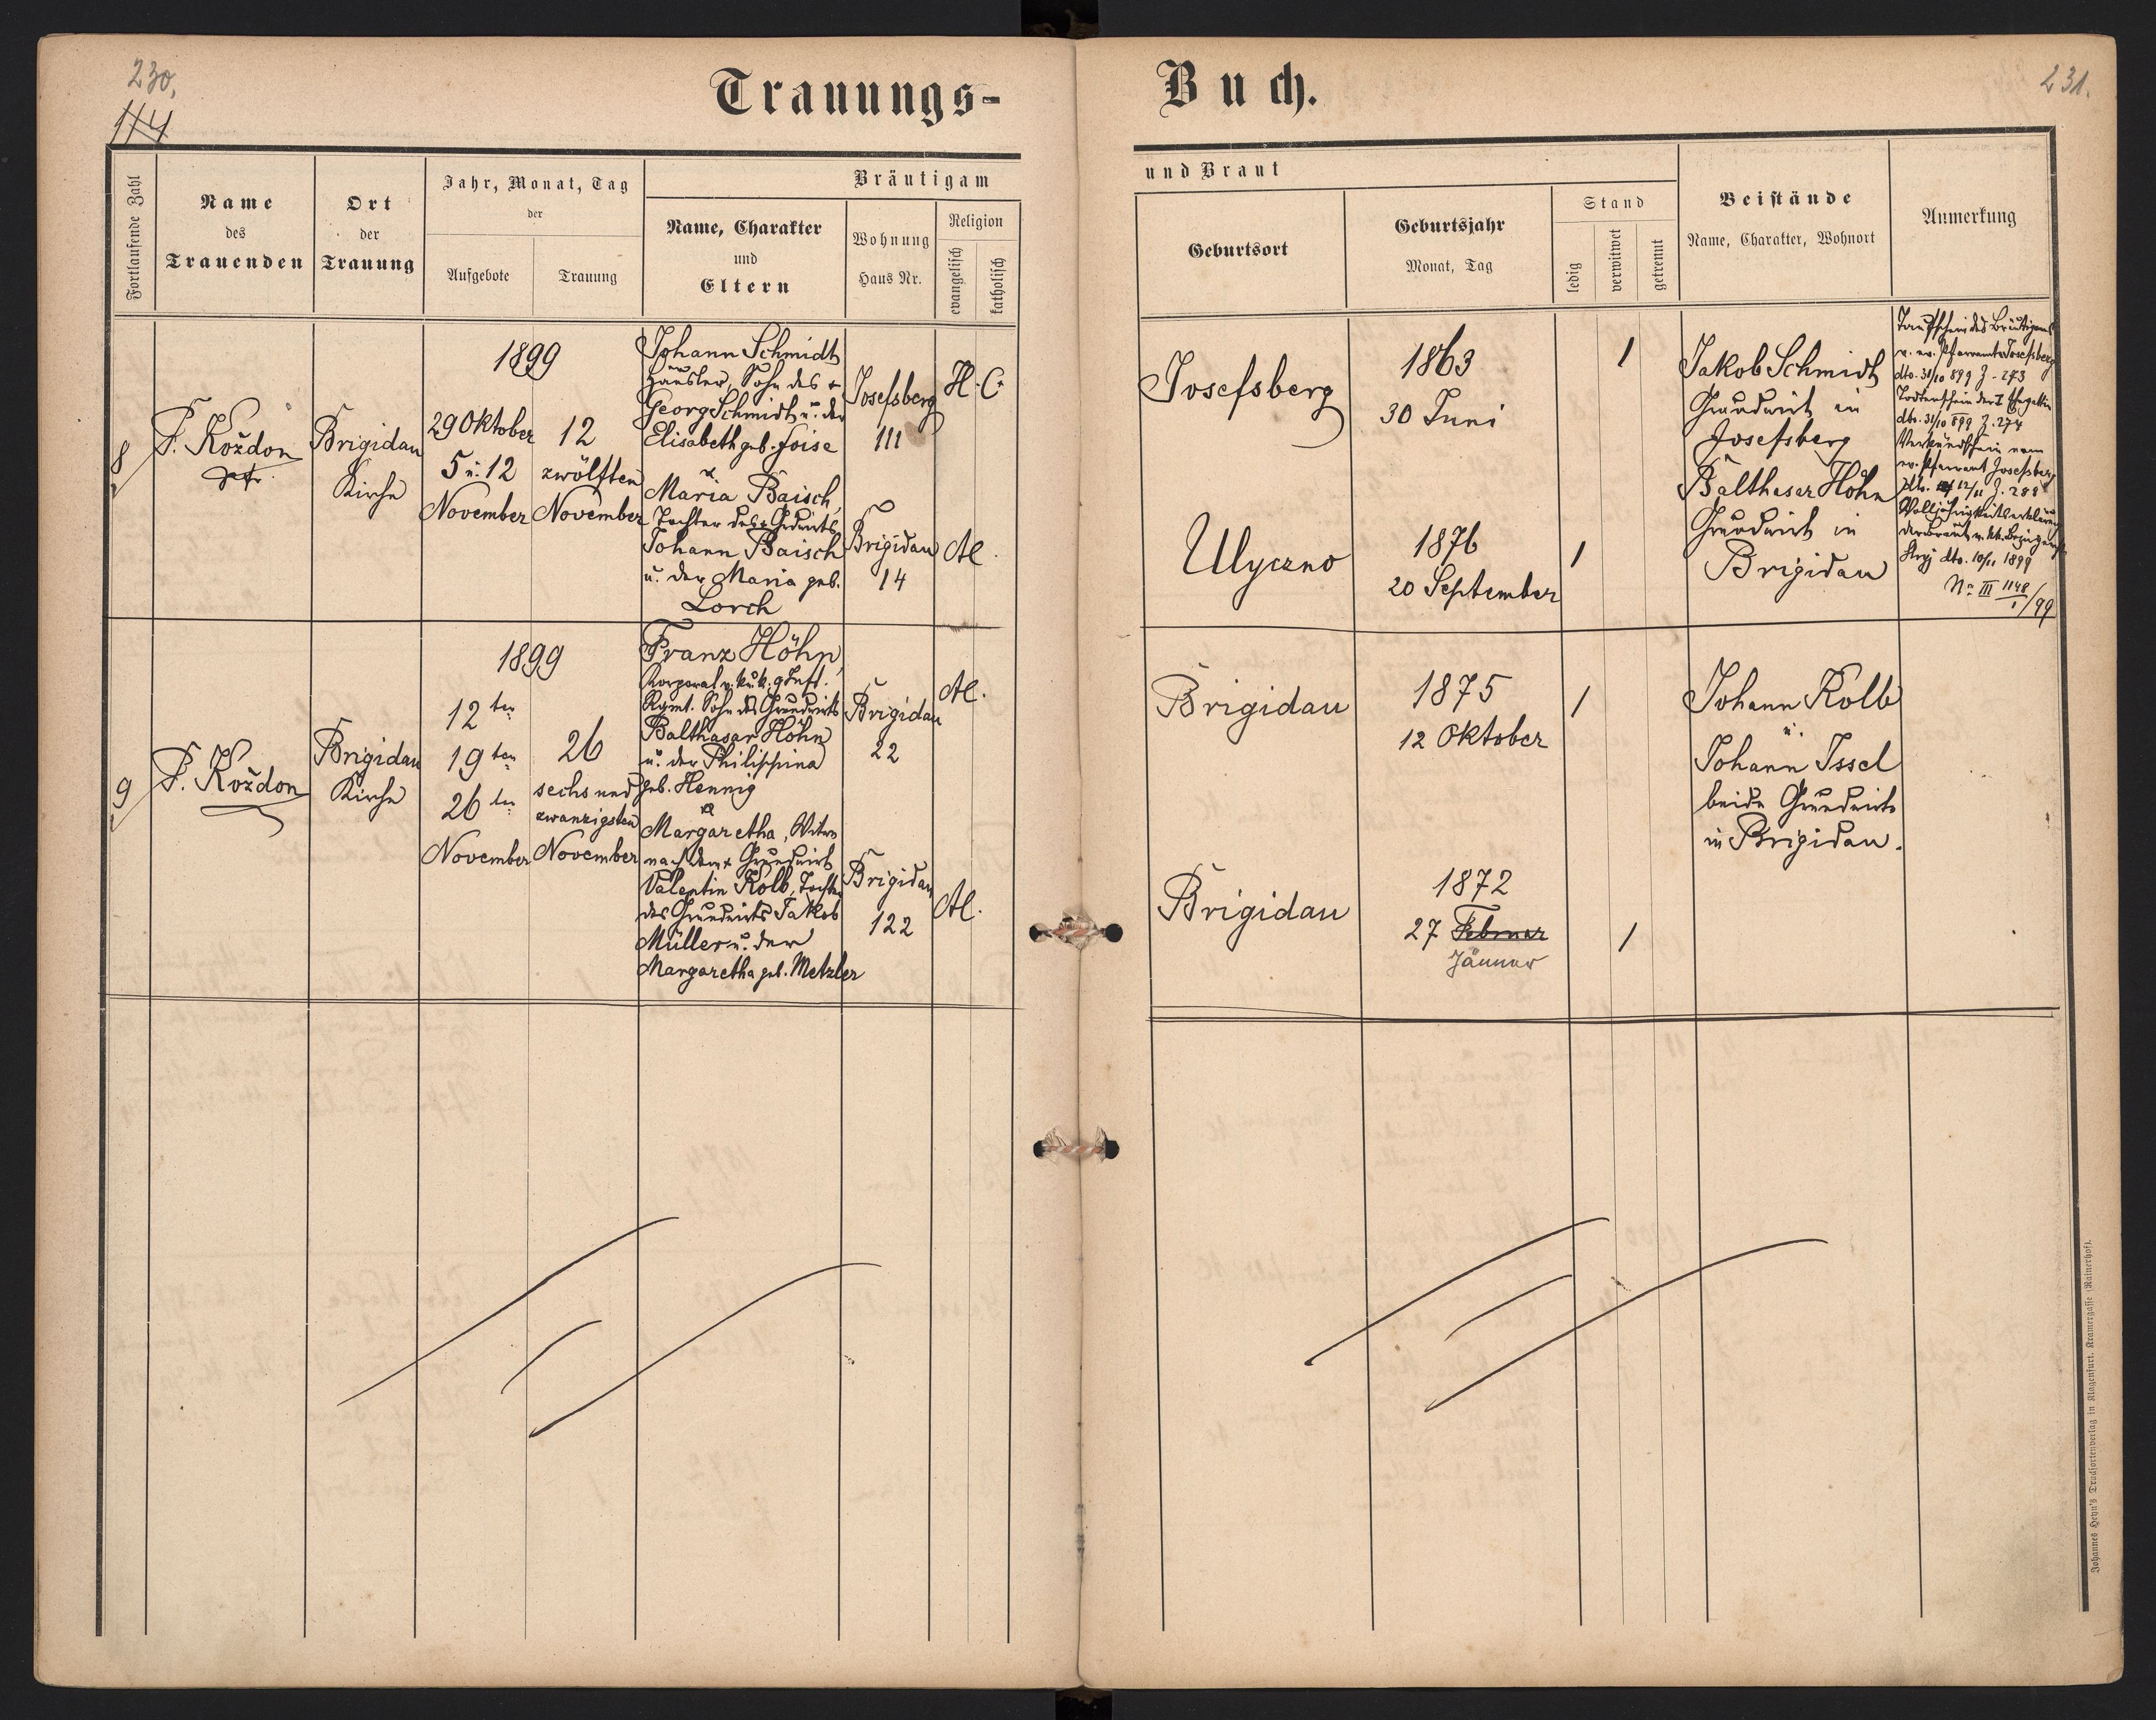 230.
114
Trauungs-
Fortlaufende Zahl
Name
des
Trauenden
Ort
der
Trauung
Jahr, Monat, Tag
der
Aufgebote
Trauung
Bräutigam
Name, Charakter
und
Eltern
Wohnung
Haus Nr.
Religion
evangelisch
katholisch
8
P. Koždon
Pfr.
Brigidau
Kirche
1899
29 Oktober
5 u. 12
November
12
zwölften
November
Johann Schmidt
Häusler, Sohn des +
Georg Schmidt u. der
Elisabeth geb.
Maria Baisch,
Tochter des + Grdwirts
Johann Baisch
u. der Maria geb.
Lorch
Josefsberg
111
Brigidau
14
H. C.
A.
9
P. Koždon
Brigidau
Kirche
1899
12 ten
19 ten
26 ten
November
26
sechs und
zwanzigsten
November
Franz Höhn,
Korporal v. k. u. k. 9 Inft.
Rgmt. Sohn des Grundwirts
Balthasar Höhn
u. der Philippina
geb. Hennig
Margaretha, Witwe
nach dem + Grundwirt
Valentin Kolb, Tochter
des Grundwirts Jakob
Müller u. der
Margaretha geb. Metzler
Brigidau
22
Brigidau
122
A.
A.
Buch.
231.
und Braut
Geburtsort
Geburtsjahr
Monat, Tag
Stand
ledig
verwitwet
getrennt
Beistände
Name, Charakter, Wohnort
Anmerkung
Josefsberg
1863
30 Juni
1
Ulyczno
1876
20 September
1
Jakob Schmidt
Grundwirt in
Josefsberg
Balthasar Höhn
Grundwirt in
Brigidau
Taufschein des Bräutigams
v. ev. Pfarramte Josefsberg
dto. 31/10 899 Z. 273
Todtenschein der I Ehegattin
dto. 31/10 899 Z. 274
Verkündschein vom
ev. Pfarramt Josefsberg
dto. 12/11 Z. 288
Volljährigkeitserklärung
der Braut v. kk. Bezirksgericht
Stryj dto. 10/11 1899
No III 1148/1/99
Brigidau
1875
12 Oktober
1
Brigidau
1872
27 Februar
Jänner
1
Johann Kolb
u.
Johann Issel
beide Grundwirte
in Brigidau.
Johannes Heyn's Drucksortenverlag in Klagenfurt. Kramergasse (Rainerhof).